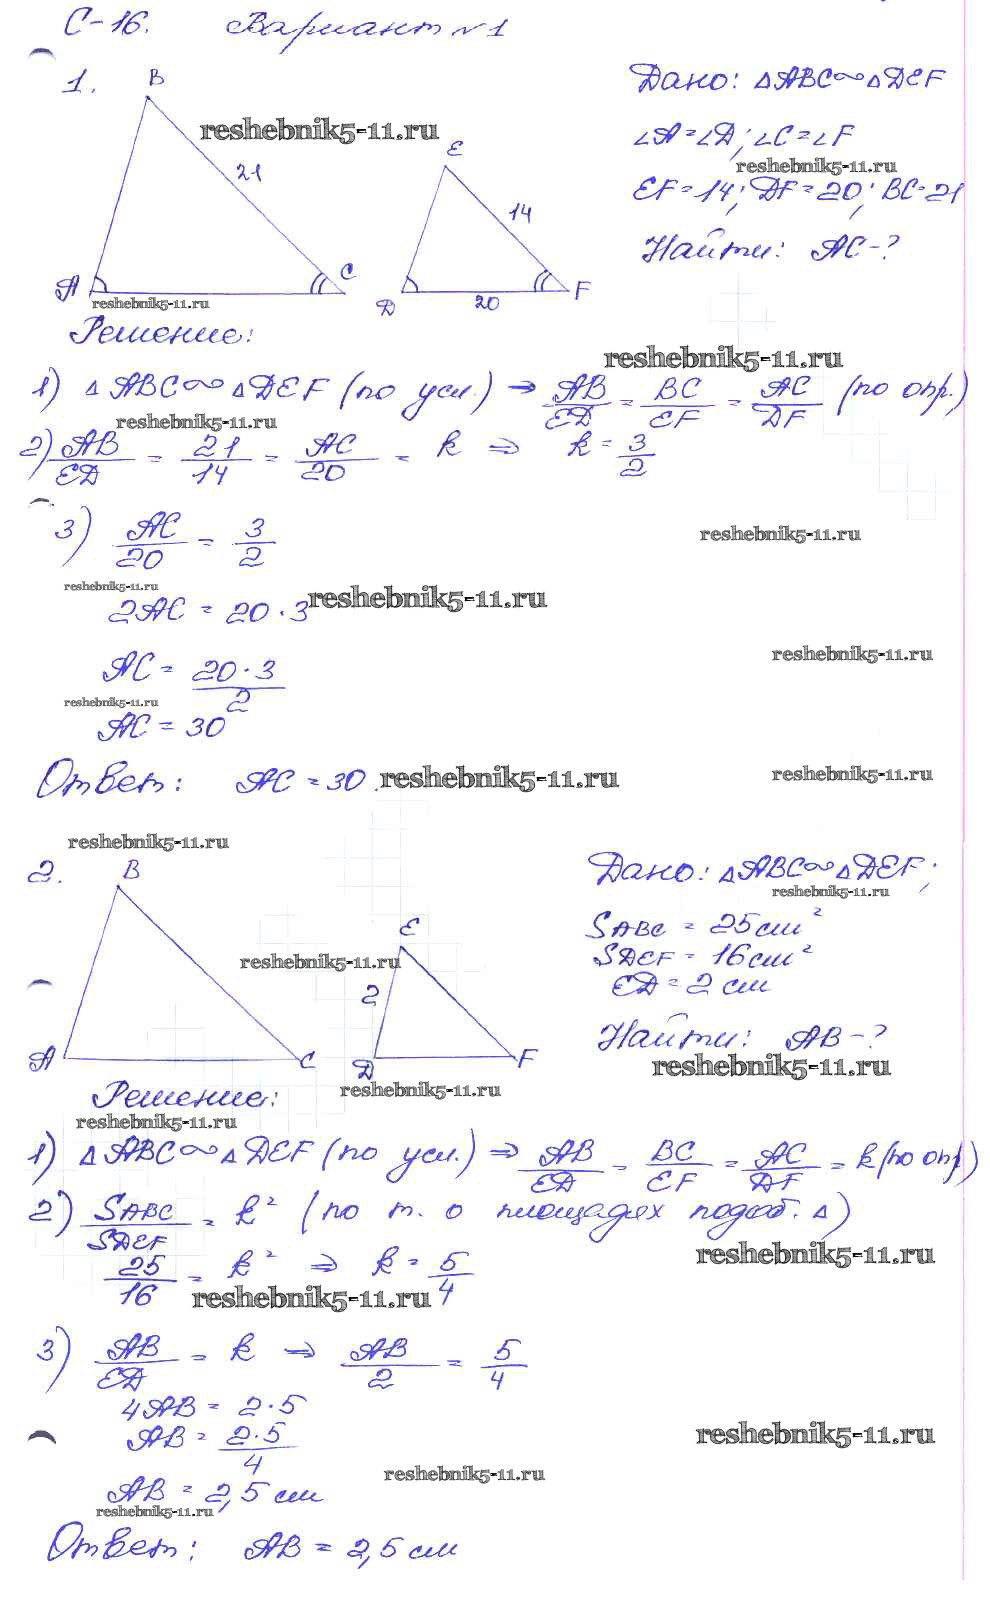 С-16. Вариант №1
1.
B
21
A
C
E
14
D
20
F
Дано: △ABC∾△DEF
∠A=∠D; ∠C=∠F
EF=14; DF=20; BC=21
Найти: AC-?
reshebnik5-11.ru
reshebnik5-11.ru
reshebnik5-11.ru
Решение:
reshebnik5-11.ru
1) △ABC∾△DEF (по усл.) ⇒ AB/ED = BC/EF = AC/DF (по опр.)
reshebnik5-11.ru
2) AB/ED = 21/14 = AC/20 = k ⇒ k = 3/2
3) AC/20 = 3/2
reshebnik5-11.ru
reshebnik5-11.ru
2AC = 20·3
reshebnik5-11.ru
AC = 20·3/2
reshebnik5-11.ru
reshebnik5-11.ru
AC = 30
Ответ: AC = 30.
reshebnik5-11.ru
reshebnik5-11.ru
reshebnik5-11.ru
2.
B
A
C
E
2
D
F
Дано: △ABC∾△DEF;
reshebnik5-11.ru
SABC = 25см²
SDEF = 16см²
ED = 2 см
Найти: AB-?
reshebnik5-11.ru
reshebnik5-11.ru
reshebnik5-11.ru
Решение:
reshebnik5-11.ru
1) △ABC∾△DEF (по усл.) ⇒ AB/ED = BC/EF = AC/DF = k (по опр)
2) SABC/SDEF = k² (по т. о площадях подоб. △)
reshebnik5-11.ru
25/16 = k² ⇒ k = 5/4
reshebnik5-11.ru
3) AB/ED = k ⇒ AB/2 = 5/4
4AB = 2·5
AB = 2·5/4
reshebnik5-11.ru
reshebnik5-11.ru
AB = 2,5 см
reshebnik5-11.ru
Ответ: AB = 2,5 см